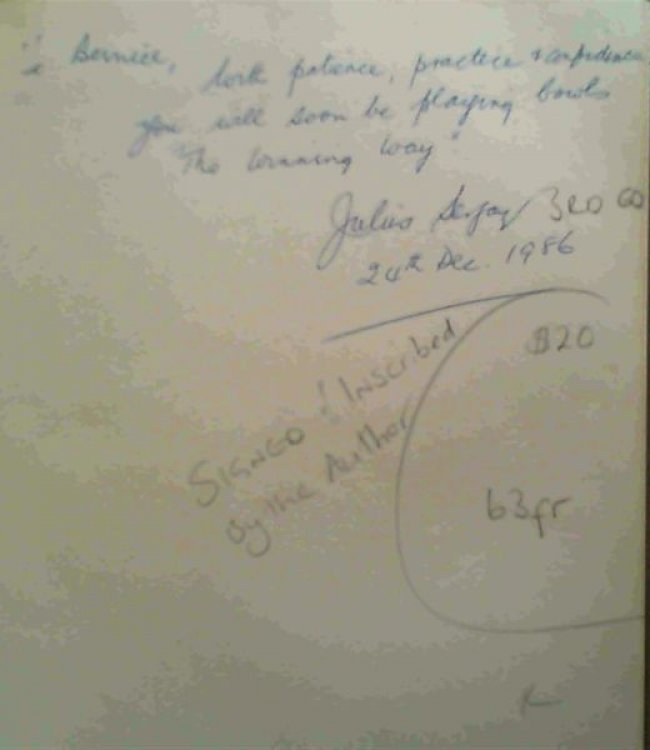 Bernice,
with patience, practice & confidence
you will soon be playing bowls
"The winning way"
Julius Sergay 3RD ED
24th Dec. 1986
$20
SIGNED & Inscribed
by the Author
63gr